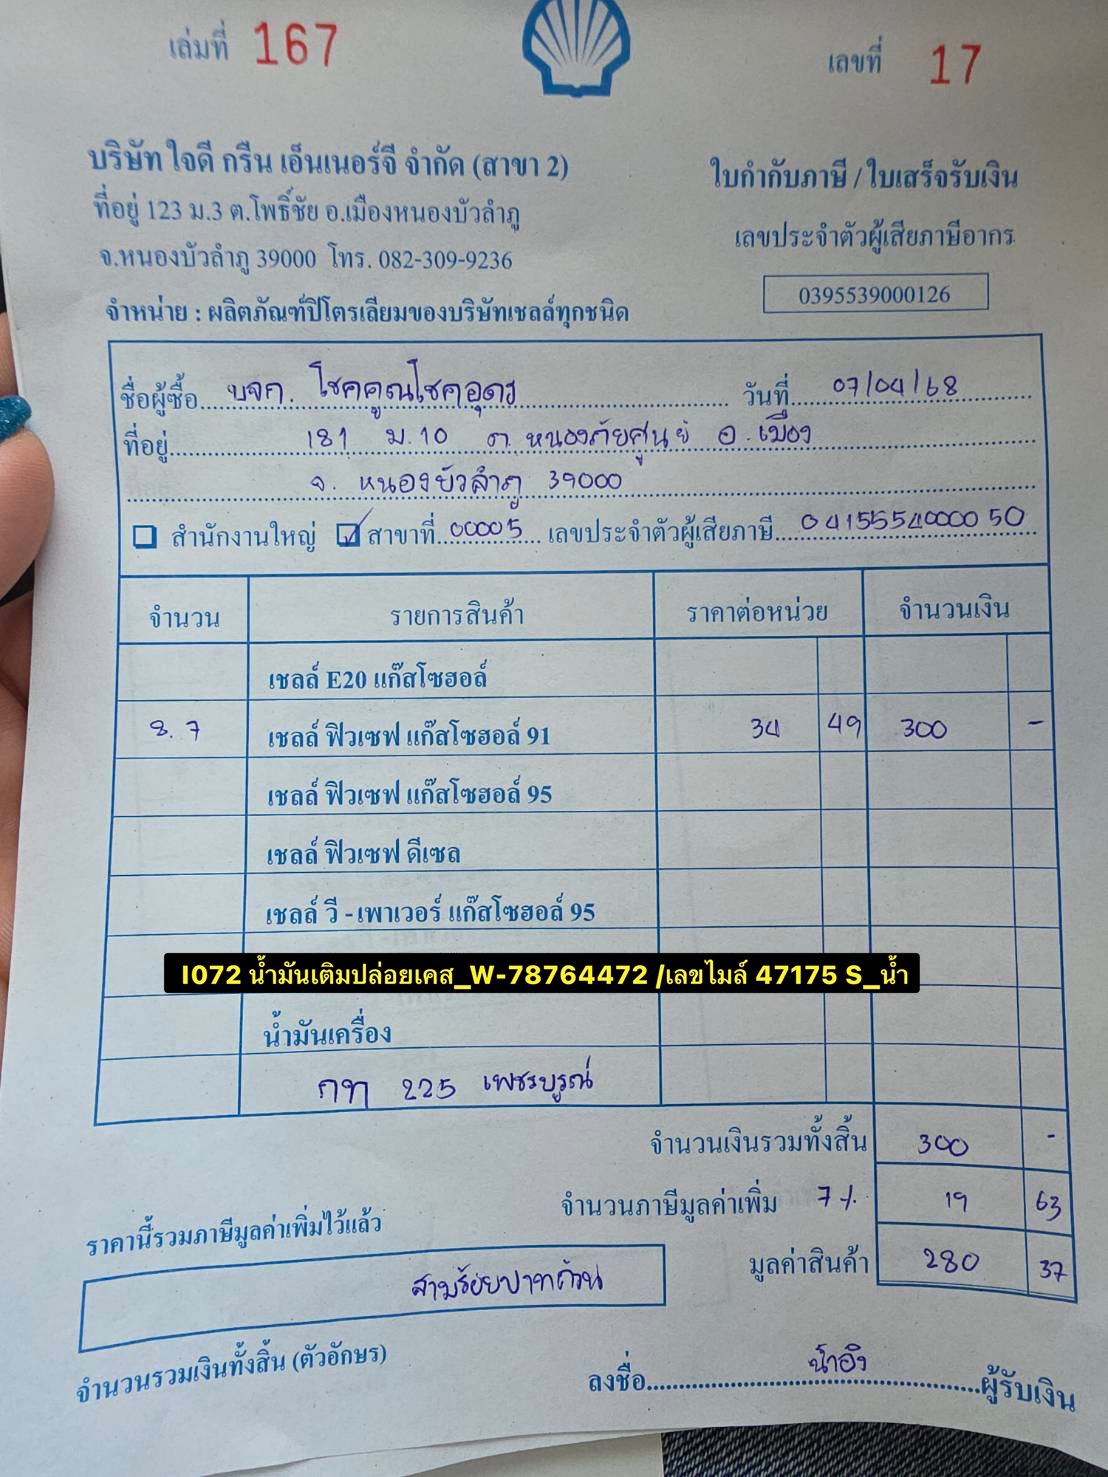 เล่มที่ 167
เลขที่ 17
บริษัท ใจดี กรีน เอ็นเนอร์จี จำกัด (สาขา 2)
ที่อยู่ 123 ม.3 ต.โพธิ์ชัย อ.เมืองหนองบัวลำภู
จ.หนองบัวลำภู 39000 โทร. 082-309-9236
จำหน่าย : ผลิตภัณฑ์ปิโตรเลียมของบริษัทเชลล์ทุกชนิด
ใบกำกับภาษี / ใบเสร็จรับเงิน
เลขประจำตัวผู้เสียภาษีอากร
0395539000126
ชื่อผู้ซื้อ บจก. โชคคูณโชคอุดร วันที่ 07/04/68
ที่อยู่ 181 ม.10 ต.หนองภัยศูนย์ อ.เมือง
จ. หนองบัวลำภู 39000
สำนักงานใหญ่ สาขาที่ 00005 เลขประจำตัวผู้เสียภาษี 0415554000050
จำนวน รายการสินค้า ราคาต่อหน่วย จำนวนเงิน
เชลล์ E20 แก๊สโซฮอล์
8.7 เชลล์ ฟิวเซฟ แก๊สโซฮอล์ 91 34 49 300 -
เชลล์ ฟิวเซฟ แก๊สโซฮอล์ 95
เชลล์ ฟิวเซฟ ดีเซล
เชลล์ วี - เพาเวอร์ แก๊สโซฮอล์ 95
I072 น้ำมันเติมปล่อยเคส_W-78764472 /เลขไมล์ 47175 S_น้ำ
น้ำมันเครื่อง
กท 225 เพชรบูรณ์
จำนวนเงินรวมทั้งสิ้น 300 -
จำนวนภาษีมูลค่าเพิ่ม 7% 19 63
ราคานี้รวมภาษีมูลค่าเพิ่มไว้แล้ว
มูลค่าสินค้า 280 37
สามร้อยบาทถ้วน
จำนวนรวมเงินทั้งสิ้น (ตัวอักษร)
ลงชื่อ น้ำอิง ผู้รับเงิน